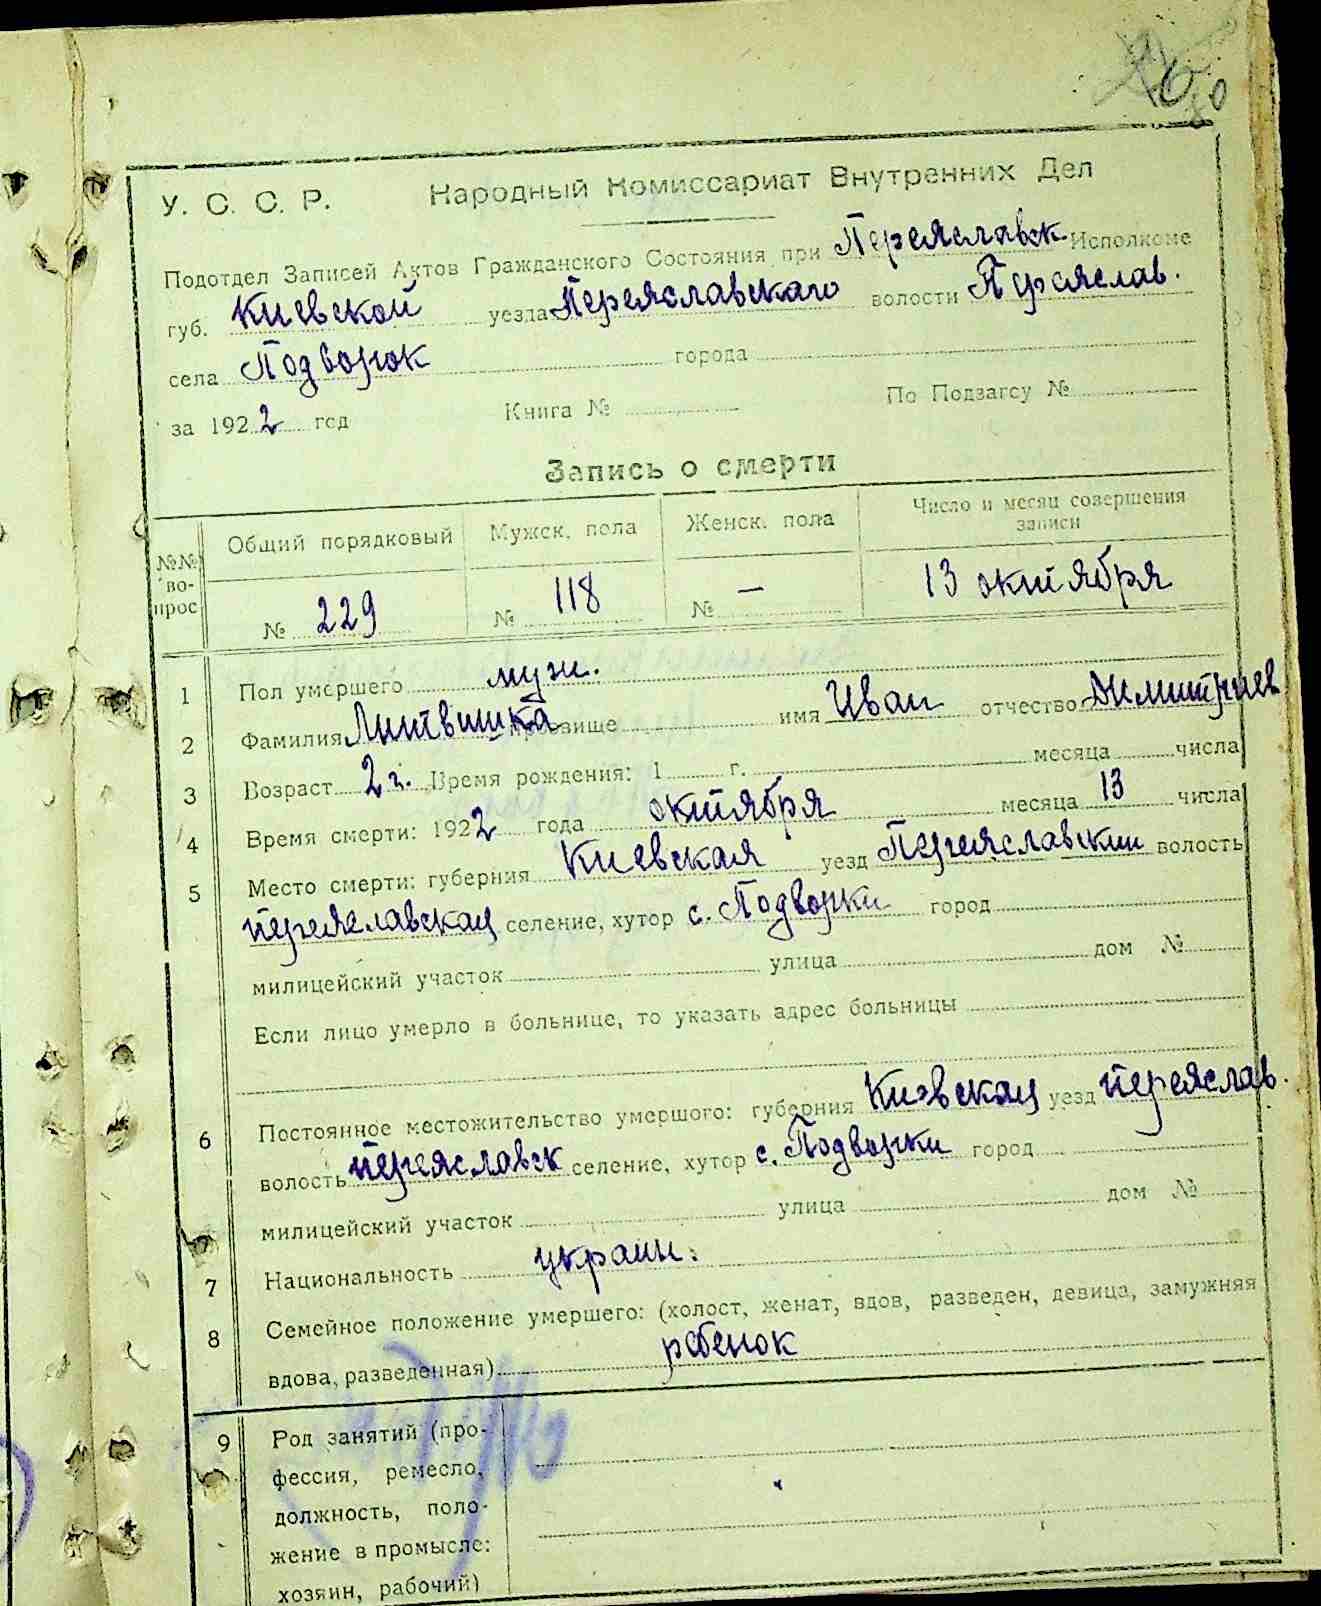 80
У. С. С. Р. Народный Комиссариат Внутренних Дел
Подотдел Записей Актов Гражданского Состояния при Переяславск Исполкоме
губ. Киевской уезда Переяславскаго волости Переяслав.
села Подворок города
за 1922 год Книга № По Подзагсу №
Запись о смерти
№№ вопрос Общий порядковый Мужск. пола Женск. пола Число и месяц совершения записи
№ 229 № 118 № — 13 октября
1 Пол умершего муж.
2 Фамилия Литвишка прозвище имя Иван отчество Димитриев
3 Возраст 2 г. Время рождения: 1 г. месяца числа
4 Время смерти: 1922 года октября месяца 13 числа
5 Место смерти: губерния Киевская уезд Переяславский волость
переяславская селение, хутор с. Подворки город
милицейский участок улица дом №
Если лицо умерло в больнице, то указать адрес больницы
6 Постоянное местожительство умершого: губерния Киевская уезд переяслав.
волость переяславск селение, хутор с. Подворки город
милицейский участок улица дом №
7 Национальность украин.
8 Семейное положение умершего: (холост, женат, вдов, разведен, девица, замужняя
вдова, разведенная) ребенок
9 Род занятий (про-
фессия, ремесло,
должность, поло-
жение в промысле:
хозяин, рабочий)